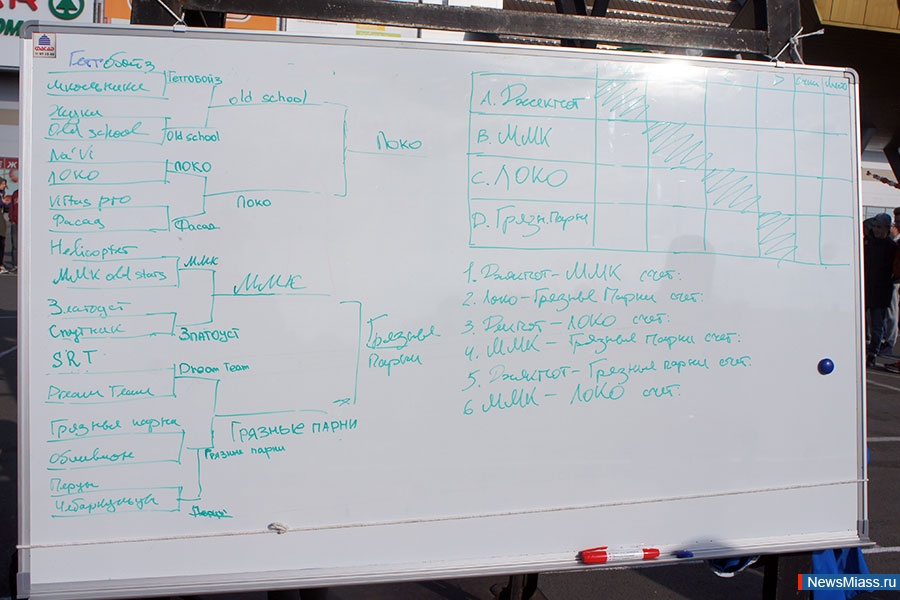 ФАСАД
Геттобойз
Школьники
Геттобойз
Жуки
Old school
Old school
old school
Na'Vi
ЛОКО
ЛОКО
Virtus pro
Фасад
Фасад
Локо
Локо
Helicopter
ММК old stars
ММК
Златоуст
Спутник
Златоуст
ММК
SRT
Dream Team
Dream Team
Грязные парни
Обливион
Грязные парни
Перцы
Чебаркульцы
Перцы
ГРЯЗНЫЕ ПАРНИ
Грязные
Парни
очки место
А. Джекпот
В. ММК
С. ЛОКО
D. Грязн. Парни
1. Джекпот - ММК счет:
2. Локо - Грязные Парни счет:
3. Джекпот - ЛОКО счет:
4. ММК - Грязные Парни счет:
5. Джекпот - Грязные парни счет:
6 ММК - ЛОКО счет:
NewsMiass.ru